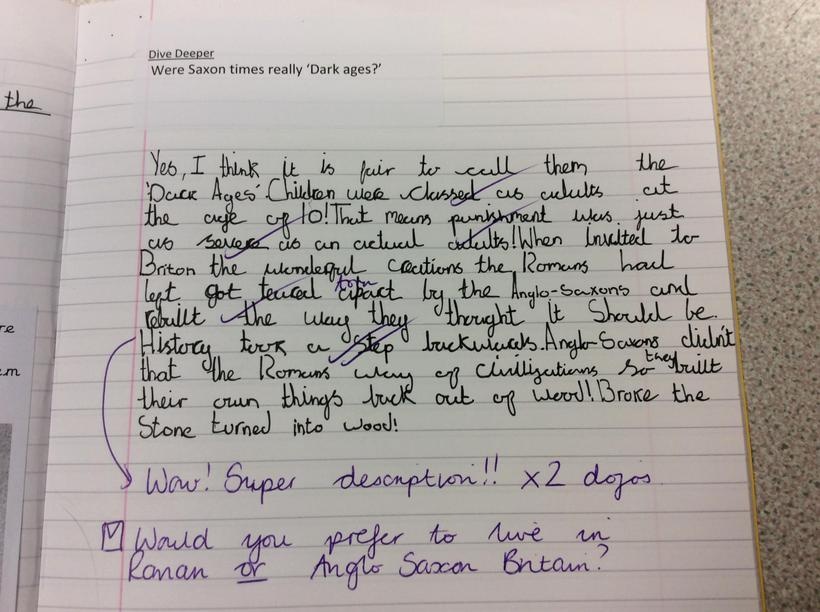 the
Dive Deeper
Were Saxon times really 'Dark ages?'
Yes, I think it is fair to call them the
'Dark Ages' Children were classed as adults at
the age of 10! That means punishment was just
as severe as an actual adults! When invited to
Briton the wonderful creations the Romans had
left got teared torn apart by the Anglo-Saxons and
rebuilt the way they thought it should be.
History took a step backwards. Anglo-Saxons didn't
that the Romans way of civilizations so they built
their own things back out of wood! Broke the
Stone turned into wood!
re
em
Wow! Super description!! x2 dojos
Would you prefer to live in
Roman or Anglo Saxon Britain?